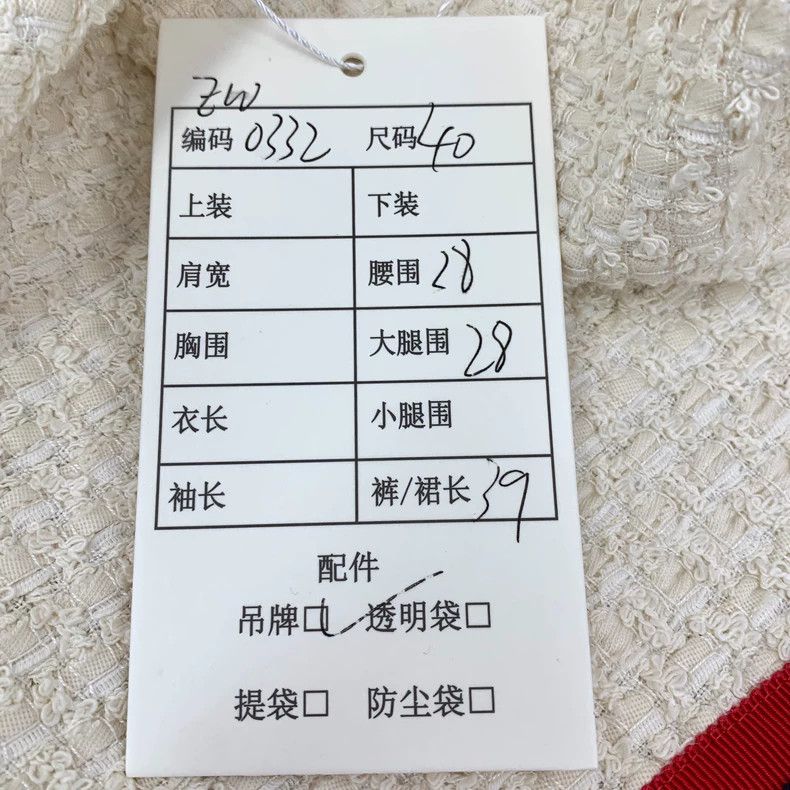 ZW
编码 0332 尺码 40
上装 下装
肩宽 腰围 28
胸围 大腿围 28
衣长 小腿围
袖长 裤/裙长 39
配件
吊牌□✓ 透明袋□
提袋□ 防尘袋□